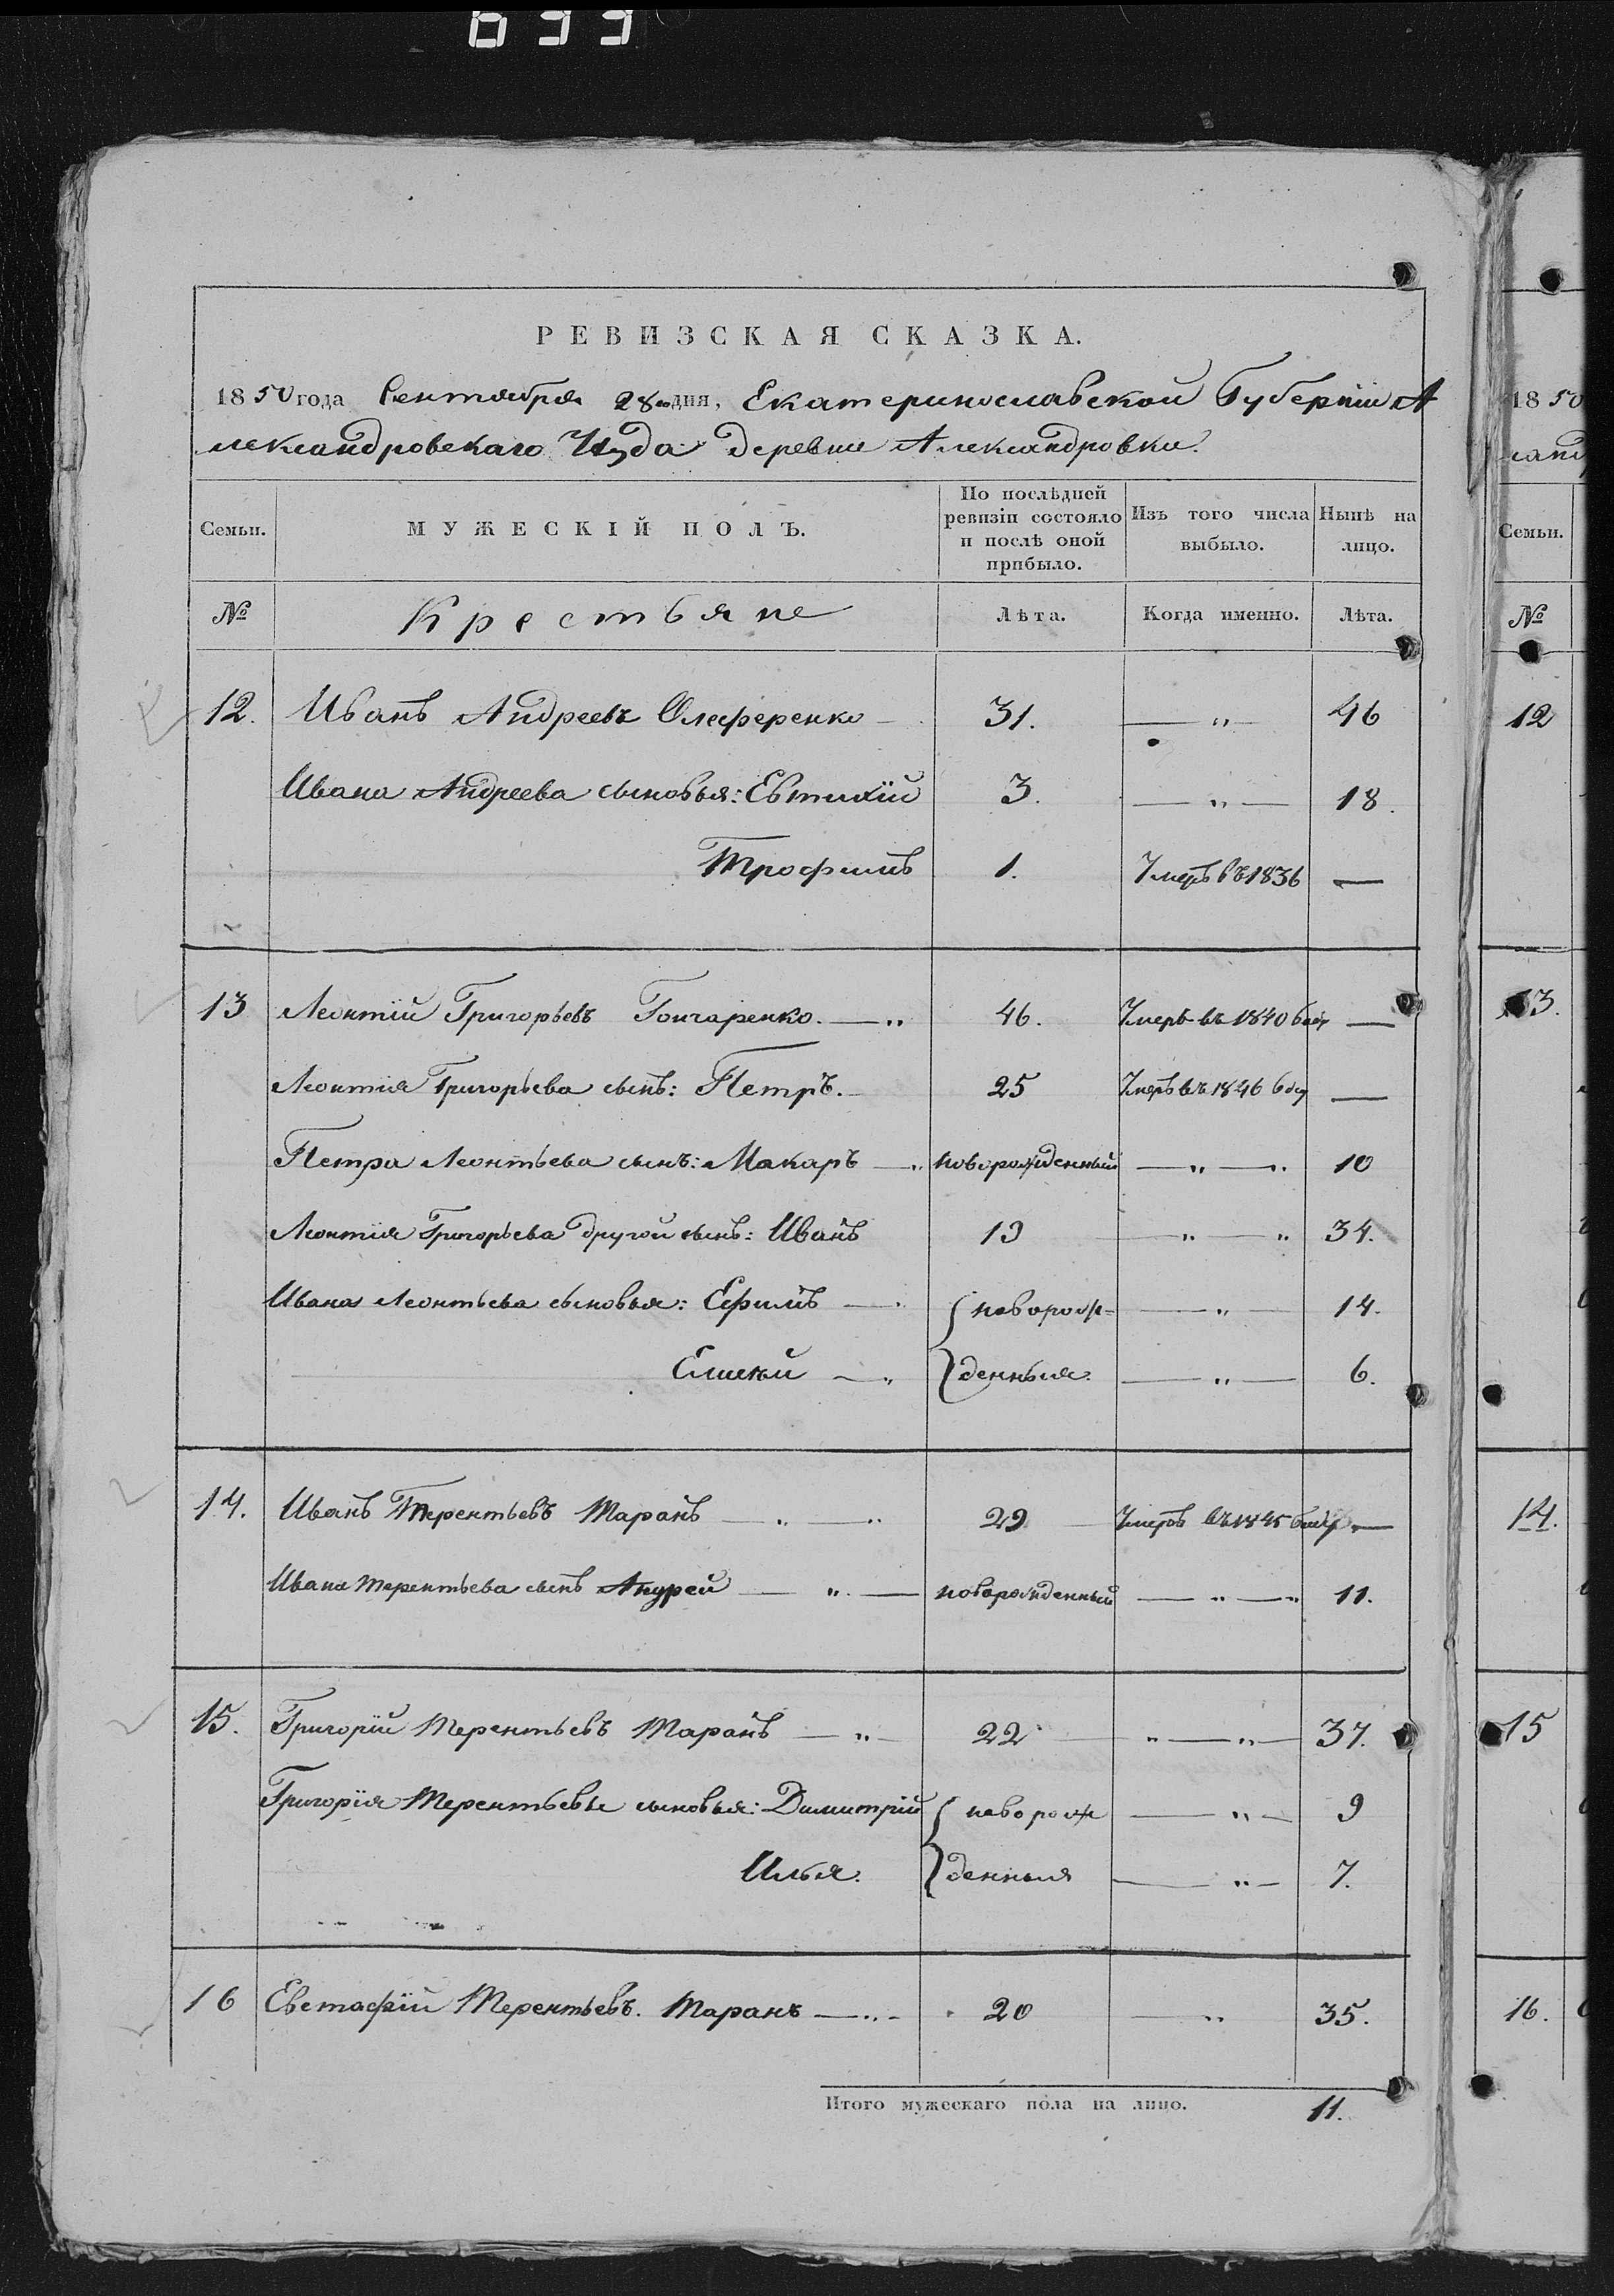 633
РЕВИЗСКАЯ СКАЗКА.
1850 года Сентября 28 дня, Екатеринославской Губерніи А
лександровскаго Уѣзда деревни Александровки.
Семьи. МУЖЕСКІЙ ПОЛЪ. По послѣдней ревизіи состояло и послѣ оной прибыло. Изъ того числа выбыло. Нынѣ на лицо.
№ Крестьяне Лѣта. Когда именно. Лѣта.
12. Иванъ Андреевъ Олеференко 31. — „ — 46
Ивана Андреева сыновья: Евтихій 3. — „ — 18.
Трофимъ 1. Умеръ въ 1836 —
13 Леонтій Григорьевъ Гончаренко. — „ 46. Умеръ въ 1840 —
Леонтія Григорьева сынъ: Петръ. 25 Умеръ въ 1846 —
Петра Леонтьева сынъ: Макаръ — „ новорожденный — „ — „ 10
Леонтія Григорьева другой сынъ: Иванъ 19 — „ — „ 34.
Ивана Леонтьева сыновья: Ефимъ — „ новорож= — „ — 14.
— „ денныя. — „ — 6.
14. Иванъ Терентьевъ Таранъ — „ — „ 29 Умеръ въ 1845 —
Ивана Терентьева сынъ Андрей — „ — новорожденный — „ — „ 11.
15. Григорій Терентьевъ Таранъ — „ — 22 — „ — „ — 37.
Григорія Терентьева сыновья: Димитрій новорож — „ — 9
Илья. денныя — „ — 7.
16 Евстафій Терентьевъ. Таранъ — „ - 20 — „ 35.
Итого мужескаго пола на лицо. 11.
1850
Семьи.
№
12
13.
14.
15
16.